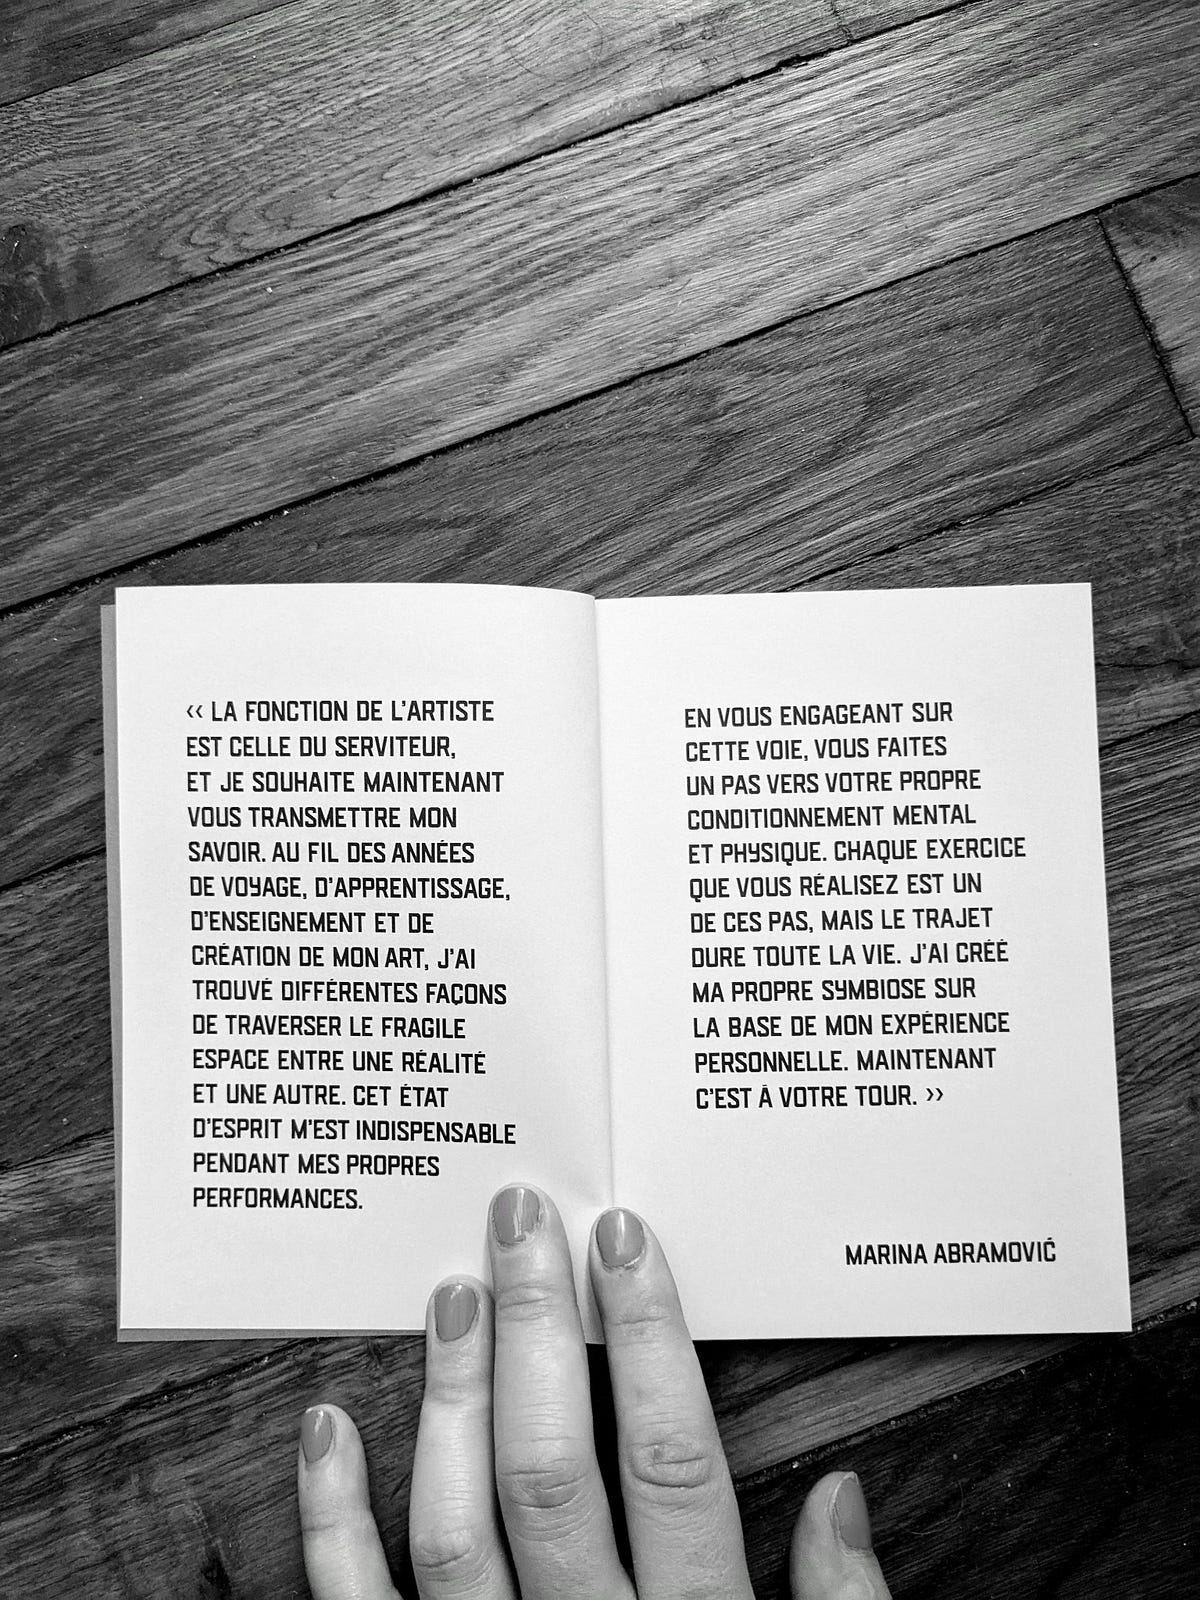 ‹‹ LA FONCTION DE L'ARTISTE
EST CELLE DU SERVITEUR,
ET JE SOUHAITE MAINTENANT
VOUS TRANSMETTRE MON
SAVOIR. AU FIL DES ANNÉES
DE VOYAGE, D'APPRENTISSAGE,
D'ENSEIGNEMENT ET DE
CRÉATION DE MON ART, J'AI
TROUVÉ DIFFÉRENTES FAÇONS
DE TRAVERSER LE FRAGILE
ESPACE ENTRE UNE RÉALITÉ
ET UNE AUTRE. CET ÉTAT
D'ESPRIT M'EST INDISPENSABLE
PENDANT MES PROPRES
PERFORMANCES.
EN VOUS ENGAGEANT SUR
CETTE VOIE, VOUS FAITES
UN PAS VERS VOTRE PROPRE
CONDITIONNEMENT MENTAL
ET PHYSIQUE. CHAQUE EXERCICE
QUE VOUS RÉALISEZ EST UN
DE CES PAS, MAIS LE TRAJET
DURE TOUTE LA VIE. J'AI CRÉÉ
MA PROPRE SYMBIOSE SUR
LA BASE DE MON EXPÉRIENCE
PERSONNELLE. MAINTENANT
C'EST À VOTRE TOUR. ››
MARINA ABRAMOVIĆ